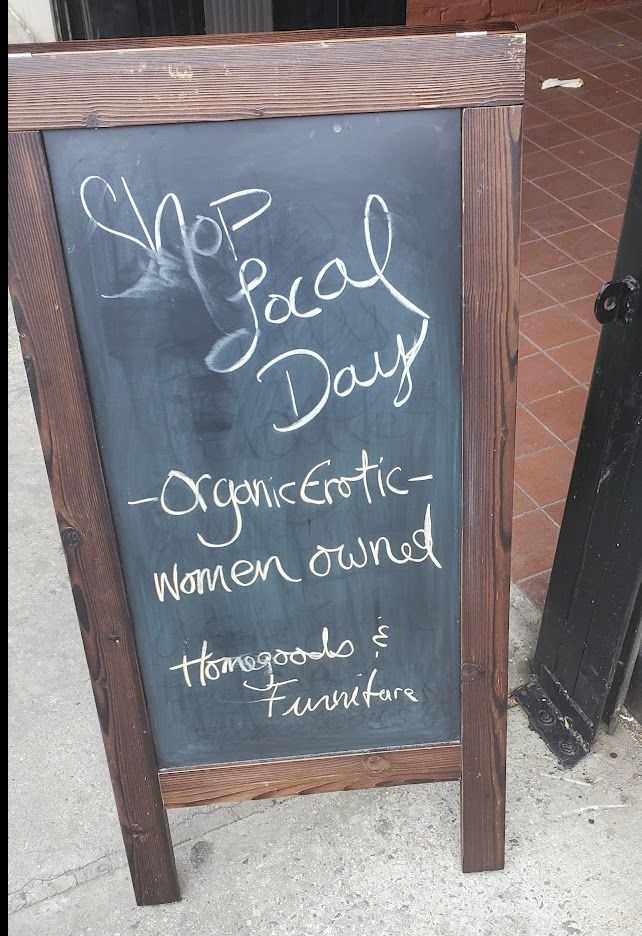 Shop
Local
Day
-Organic Erotic-
women owned
Homegoods &
Furniture